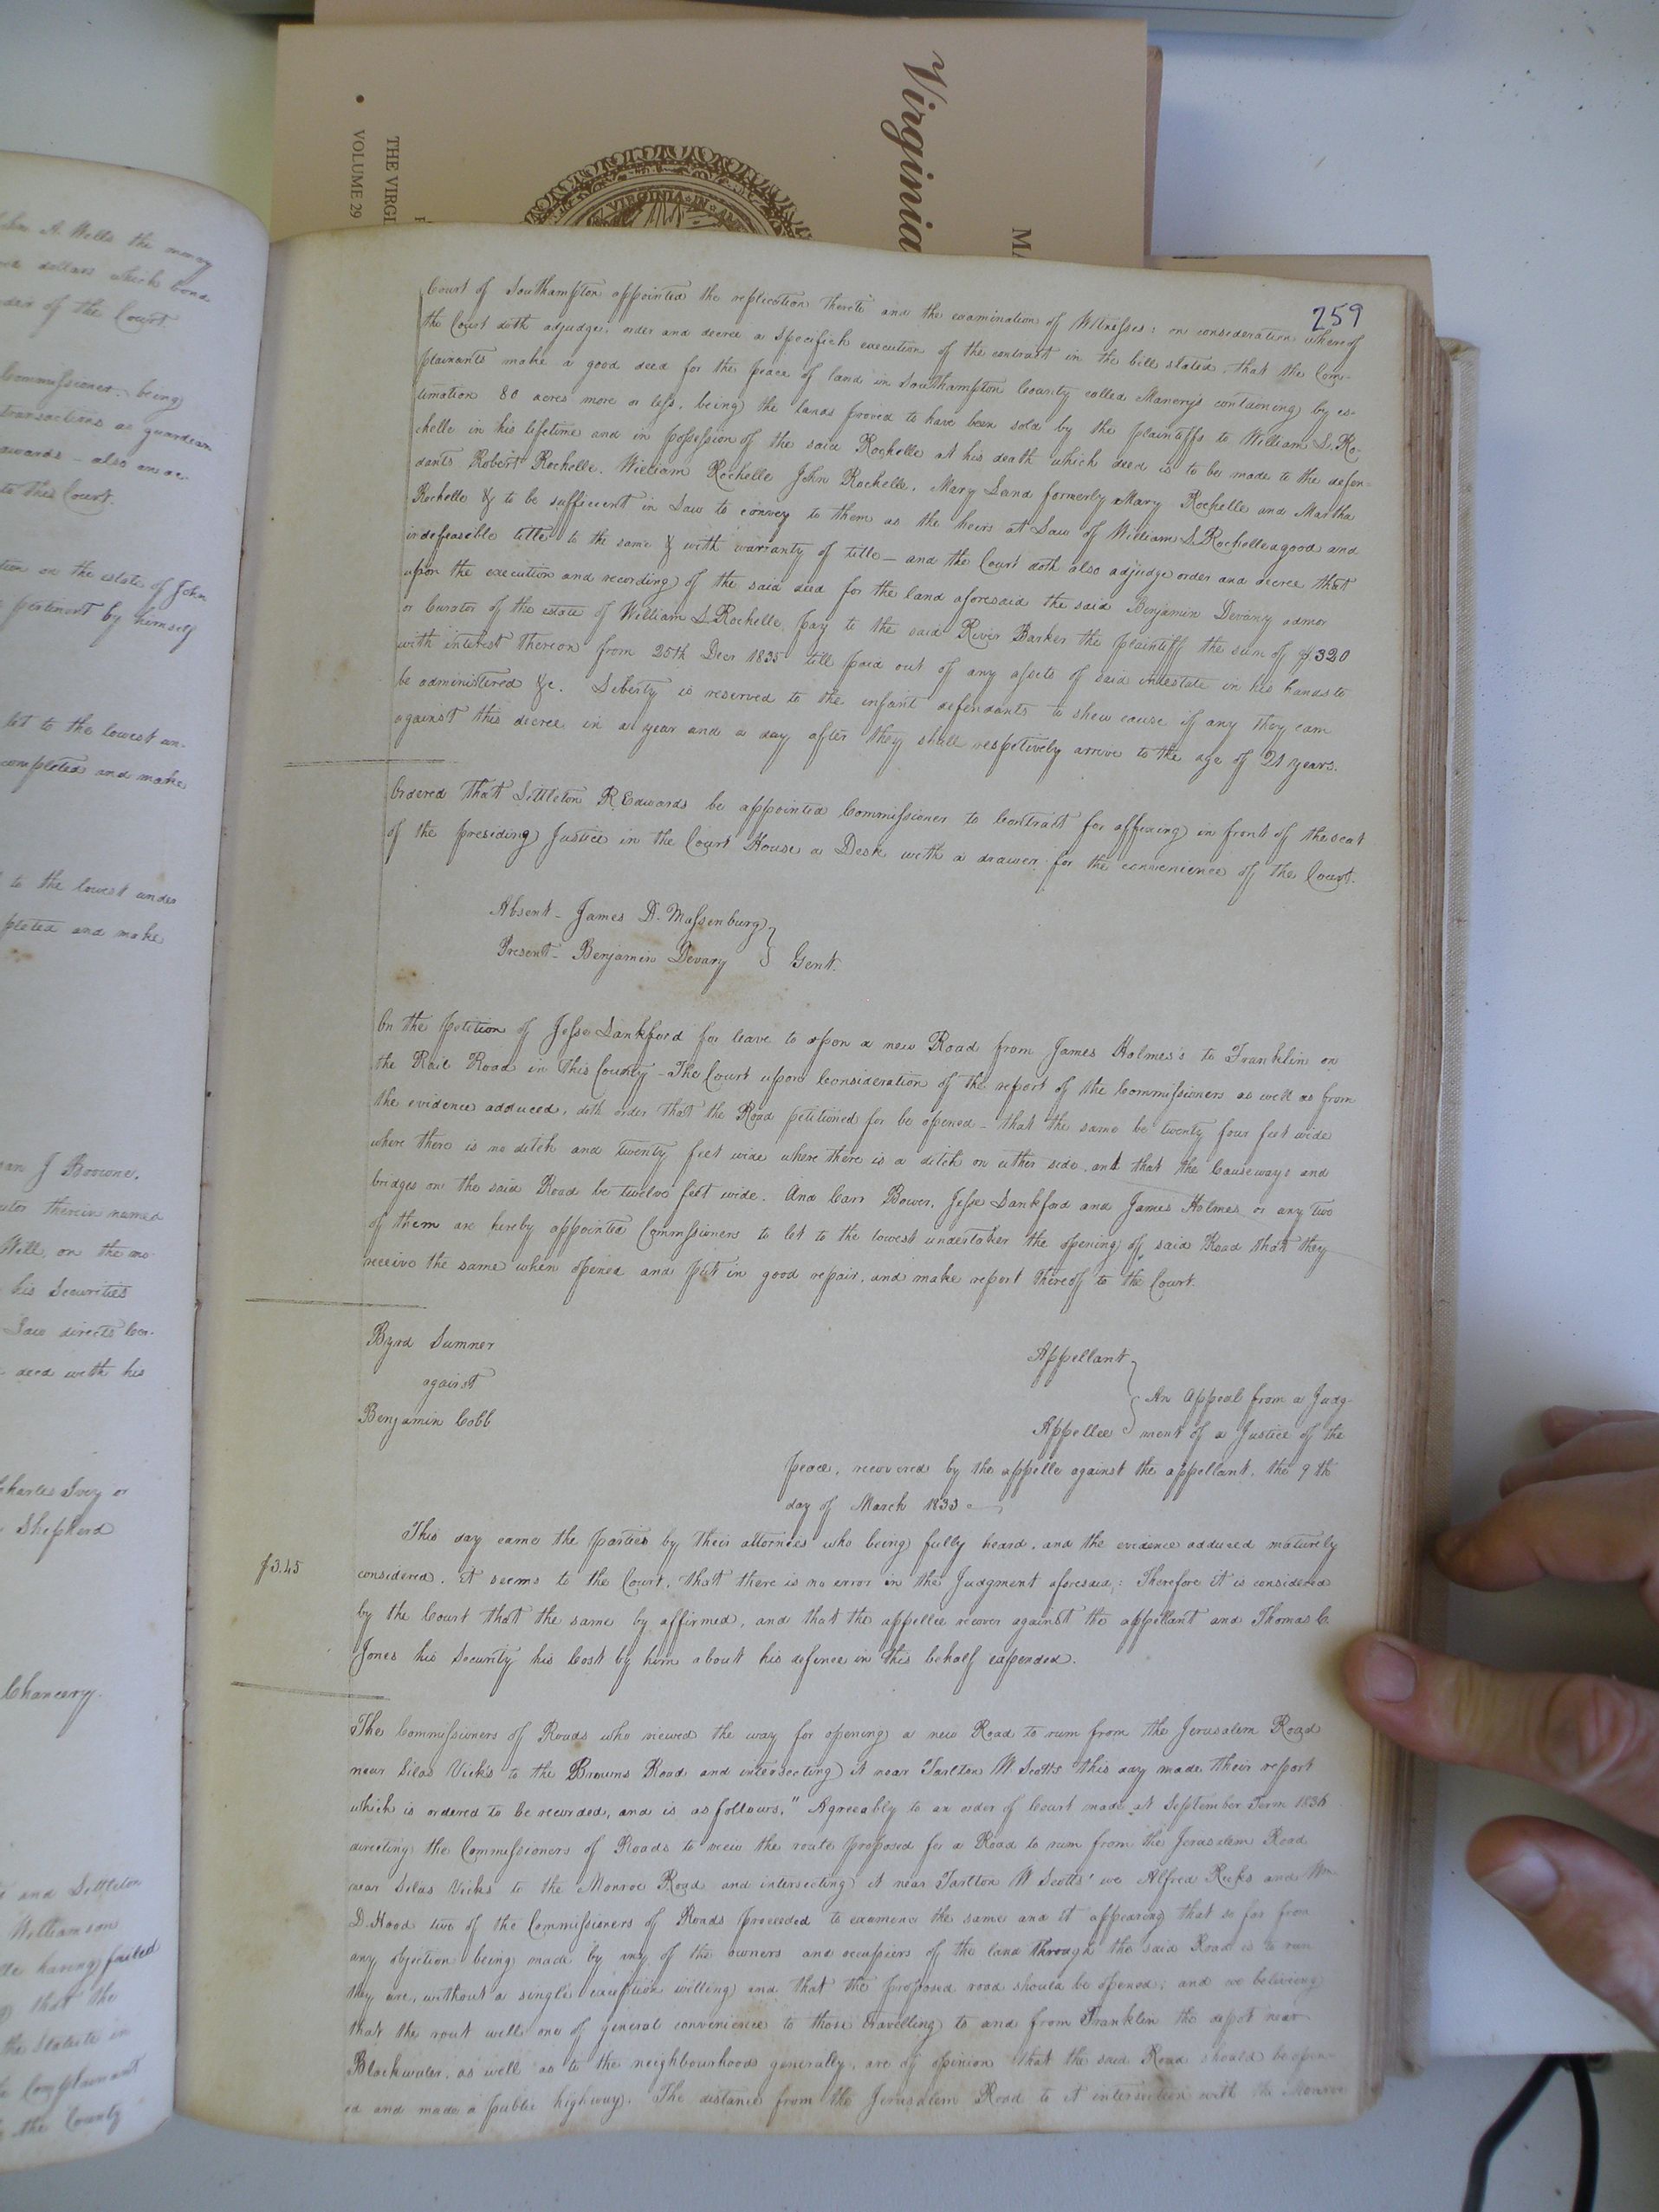 Virginia
MA
THE VIRGI
• VOLUME 29
VIRGINIA IN AM
259
Court of Southampton appointed the replication thereto and the examination of Witnesses: on consideration whereof
the Court doth adjudge, order and decree a specifick execution of the contract in the bill stated, that the Com-
plainants make a good deed for the peace of land in Southampton County called Manery's containing by es-
timation 80 acres more or less, being the lands proved to have been sold by the plaintiffs to William S. Ro-
chelle in his lifetime and in possession of the said Rochelle at his death which deed is to be made to the defen-
dants Robert Rochelle, William Rochelle John Rochelle, Mary Land formerly Mary Rochelle and Martha
Rochelle & to be sufficient in Law to convey to them as the heirs at Law of William S. Rochelle a good and
indefeasible title to the same & with warranty of title — and the Court doth also adjudge order and decree that
upon the execution and recording of the said deed for the land aforesaid the said Benjamin Devany admor
or Curator of the estate of William S. Rochelle pay to the said River Barker the plaintiff the sum of $320
with interest thereon from 25th Decr 1835 till paid out of any assets of said intestate in his hands to
be administered &c. Liberty is reserved to the infant defendants to shew cause if any they can
against this decree in a year and a day after they shall respetively arrive to the age of 21 years.
Ordered that Littleton R. Edwards be appointed Commissioner to Contract for affixing in front of the seat
of the presiding Justice in the Court House a Desk with a drawer for the convenience of the Court.
Absent - James D. Massenburg }
Present - Benjamin Devany } Gent.
On the petition of Jesse Lankford for leave to open a new Road from James Holmes's to Franklin on
the Rail Road in this County - The Court upon Consideration of the report of the Commissioners as well as from
the evidence adduced, doth order that the Road petitioned for be opened - that the same be twenty four feet wide
where there is no ditch and twenty feet wide where there is a ditch on either side, and that the Causeways and
bridges on the said Road be twelve feet wide. And Carr Bower, Jesse Lankford and James Holmes or any two
of them are hereby appointed Commissioners to let to the lowest undertaker the opening of said Road that they
receive the same when opened and put in good repair, and make report thereof to the Court.
Byrd Sumner Appellant }
against } An Appeal from a Judg-
Benjamin Cobb Appellee } ment of a Justice of the
peace, recovered by the appelle against the appellant, the 9th
day of March 1833
This day came the parties by their attornies who being fully heard, and the evidence adduced maturely
$3.45 considered. it seems to the Court, that there is no error in the Judgment aforesaid,: Therefore it is considered
by the Court that the same by affirmed, and that the appellee recover against the appellant and Thomas C.
Jones his Security his Cost by him about his defence in this behalf expended.
The Commissioners of Roads who viewed the way for opening a new Road to run from the Jerusalem Road
near Silas Vick's to the Browns Road and intersecting it near Tarlton W. Scotts this day made their report
which is ordered to be recorded, and is as follows, " Agreeably to an order of Court made at September Term 1836
directing the Commissioners of Roads to view the route proposed for a Road to run from the Jerusalem Road
near Silas Vicks to the Monroe Road and intersecting it near Tarlton W Scotts' we Alfred Ricks and Wm
D. Hood two of the Commissioners of Roads proceeded to examine the same and it appearing that so far from
any objection being made by any of the owners and occupiers of the land through the said Road is to run
they are, without a single exception willing and that the proposed road should be opened; and we believing
that the rout will one of general convenience to those travelling to and from Franklin the depot near
Blackwater, as well as to the neighbourhoods generally, are of opinion that the said Road should be open-
ed and made a public highway. The distance from the Jerusalem Road to it intersection with the Monroe